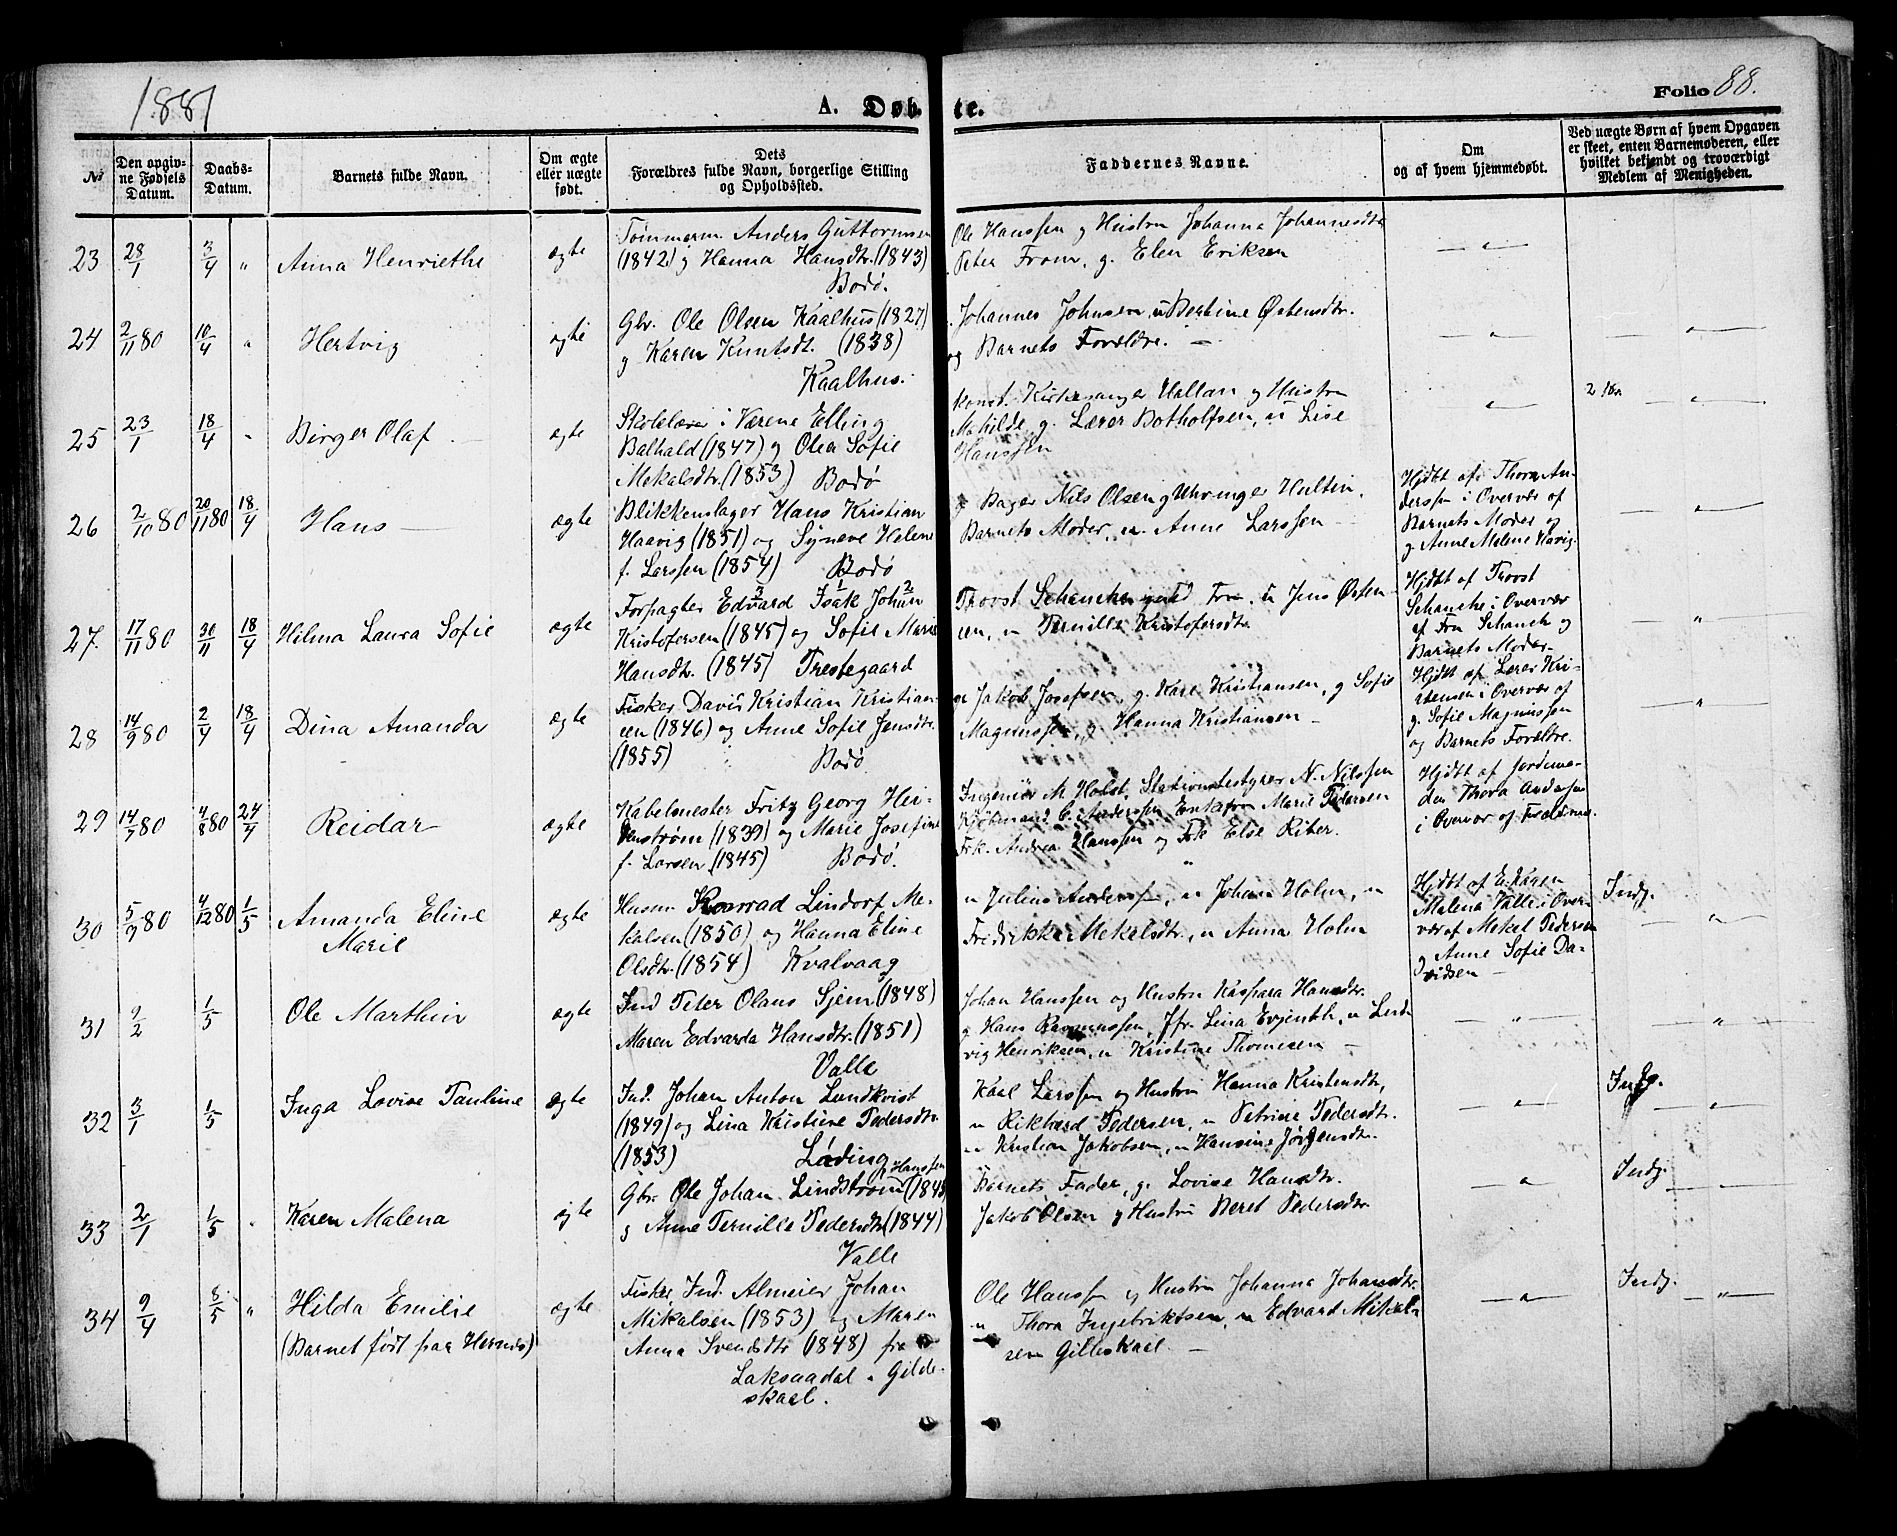 1881
A. Døbte.
Folio 88.
No
Den opgivne Fødsels Datum.
Daabs-Datum.
Barnets fulde Navn.
Om ægte eller uægte født.
Dets Forældres fulde Navn, borgerlige Stilling og Opholdssted.
Faddernes Navne.
Om og af hvem hjemmedøbt.
Ved uægte Børn af hvem Opgaven er skeet, enten Barnemoderen, eller hvilket bekjendt og troværdigt Medlem af Menigheden.
23 28/1 3/4 " Anna Henriethe ægte
Tømmerm. Anders Guttormsen
(1842) g Hanna Hansdtr. (1843)
Bodø.
Ole Hanssen g Hustru Johanna Johannesdtr
Peter From, g. Elen Eriksen
24 2/11 80 10/4 " Hertvig ægte
Gbr. Ole Olsen Kaalhus (1827)
g Karen Knutsdt. (1838)
Kaalhus.
Johannes Johnsen, u Bertine Østensdtr.
og Barnets Forældre. —
25 23/1 18/4 " Birger Olaf — ægte
Skolelærer i Værene Elling
Balhald (1847) g Olea Sofie
Mekalsdtr. (1853) Bodø
konst. Kirkesanger Hallan g Hustru
Mathilde, g. Lærer Botholfsen, u Lise
Hanssen
26 2/10 80 20/11 80 18/4 Hans — ægte
Blikkenslager Hans Kristian
Haavig (1851) og Syneve Helene
f. Larssen (1854) Bodø
g Bager Nils Olsen g Uhrmager Hultin,
Barnets Moder, u. Anne Larssen —
Hjdbt af: Thora An-
derssen i Overvær af
Barnets Moder og
g. Anne Malene Havig.
27. 17/11 80 30/11 18/4 Hilma Laura Sofie ægte
Forpagter Edvard Isak Johan
Kristofersen (1845) og Sofie Marie
Hansdtr. (1845) Prestegaard
Provst Schanche og Fru, u Jens Østen-
sen, u Pernille Kristofersdtr.
Hjdbt af Provst
Schanche i Overvær
af Fru Schanche og
Barnets Moder.
28 14/9 80 2/4 18/4 Dina Amanda ægte
Fisker David Kristian Kristian-
sen (1846) og Anne Sofie Jensdtr.
(1855) Bodø
g Jakob Josefsen, g. Karl Kristiansen, g Sofie
Magnussen, g Hanna Kristiansen —
Hjdbt af Lærer Kri-
stensen i Overvær af
g. Sofie Magnussen
og Barnets Forældre.
29 14/7 80 4/8 80 24/4 Reidar ægte
Kabelmester Fritz Georg Hei-
denstrøm (1839) og Marie Josefine
f. Larsen (1845) Bodø.
Ingeniør M. Holst, Stationsbestyrer N. Nilssen
Kjøbmand C. Anderssen, Enkefru Marie Pedersen
Frk. Andrea Hanssen og Frk Else Riber.
Hjdbt af Jordemo-
der Thora Anderssen
i Overvær af Forældrene.
30 5/9 80 4/12 80 1/5 Amanda Eline
Marie ægte
Husm. Konrad Lindorf Me-
kalsen (1850) og Hanna Eline
Olsdtr. (1854) Kvalvaag
u Julius Anderssen, u Johan Holm, u
Fredrikke Mekalsdtr., u Anna Holm
Hjdbt af E. Karen
Malena Valle i Over-
vær af Mekel Pedersen
g Anne Sofie Da-
vidsen —
Indg.
31 2/2 1/5 Ole Marthin ægte
Ind Peter Olaus Sjem (1848)
Maren Edvarda Hansdtr. (1851)
Valle
Johan Hanssen og Hustru Kaspara Hansdtr.
g Hans Rasmussen, Jfr. Lina Evjenth, u Lud-
vig Henriksen, u Kristine Thomesen —
32 3/1 1/5 Inga Lovise Pauline ægte
Ind. Johan Anton Lundkvist
(1849) og Lina Kristine Pedersdtr.
(1853) Løding
Karl Larssen og Hustru Hanna Kristensdtr,
u Rikhard Pedersen, u Petrine Pedersdtr.
u Kristian Jakobsen, u Hansine Jørgensdtr.
Indg.
33 2/1 1/5 " Karen Malena ægte
Gbr. Ole Johan Lindstrøm Hanssen (1845
g Anne Pernille Pedersdtr. (1844)
Valle
Barnets Fader, g. Lovise Hansdtr.
Jakob Olsen g Hustru Beret Pedersdtr.
Indg.
34 9/4 8/5 " Hilda Emilie ægte
(Barnet født paa Hernes)
Fisker Ind. Almeier Johan
Mikalsen (1853) og Maren
Anna Svendsdtr (1848) fra
Laksaadal i Gilde-
skaal.
Ole Hanssen og Hustru Johanna Johansdtr.
u Thora Ingebriktsen, u Edvard Mikal-
sen Gilleskaal. —
Indg.